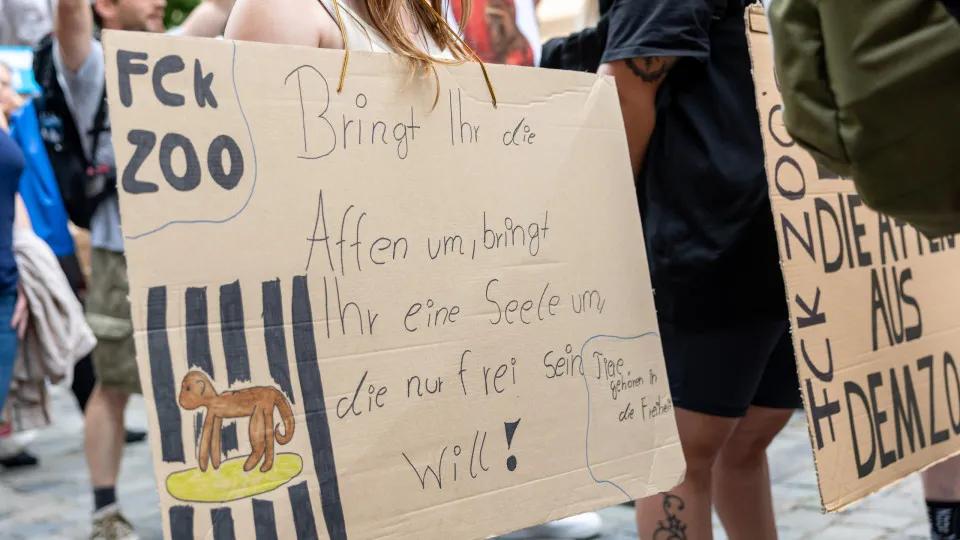 FCK
ZOO
Bringt Ihr die
Affen um, bringt
Ihr eine Seele um,
die nur frei sein
Will!
Tiere
gehören in
die Freiheit
FCK ZOO
DIE AFFEN
AUS
DEM ZO